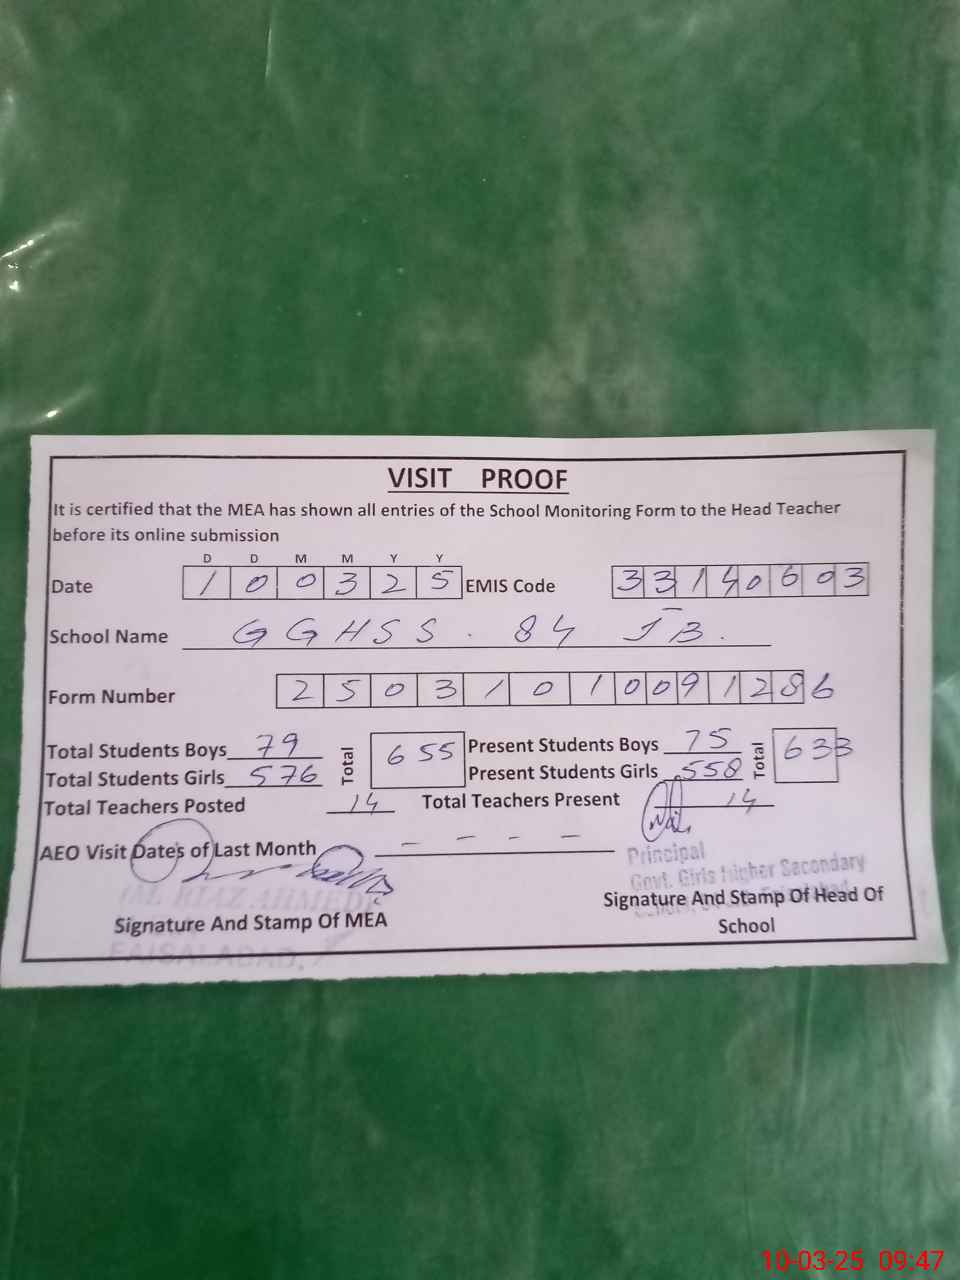 VISIT PROOF
It is certified that the MEA has shown all entries of the School Monitoring Form to the Head Teacher
before its online submission
D D M M Y Y
Date 1 0 0 3 2 5 EMIS Code 3 3 1 4 0 6 0 3
School Name GGHSS. 84 JB.
Form Number 2 5 0 3 1 0 1 0 0 9 1 2 8 6
Total Students Boys 79 Total 655 Present Students Boys 75 Total 633
Total Students Girls 576 Present Students Girls 558
Total Teachers Posted 14 Total Teachers Present 14
AEO Visit Dates of Last Month - - - -
Principal
Govt. Girls Higher Secondary
RIAZ AHMED
Signature And Stamp Of MEA
Signature And Stamp Of Head Of
School
FAISALABAD.
10-03-25 09:47